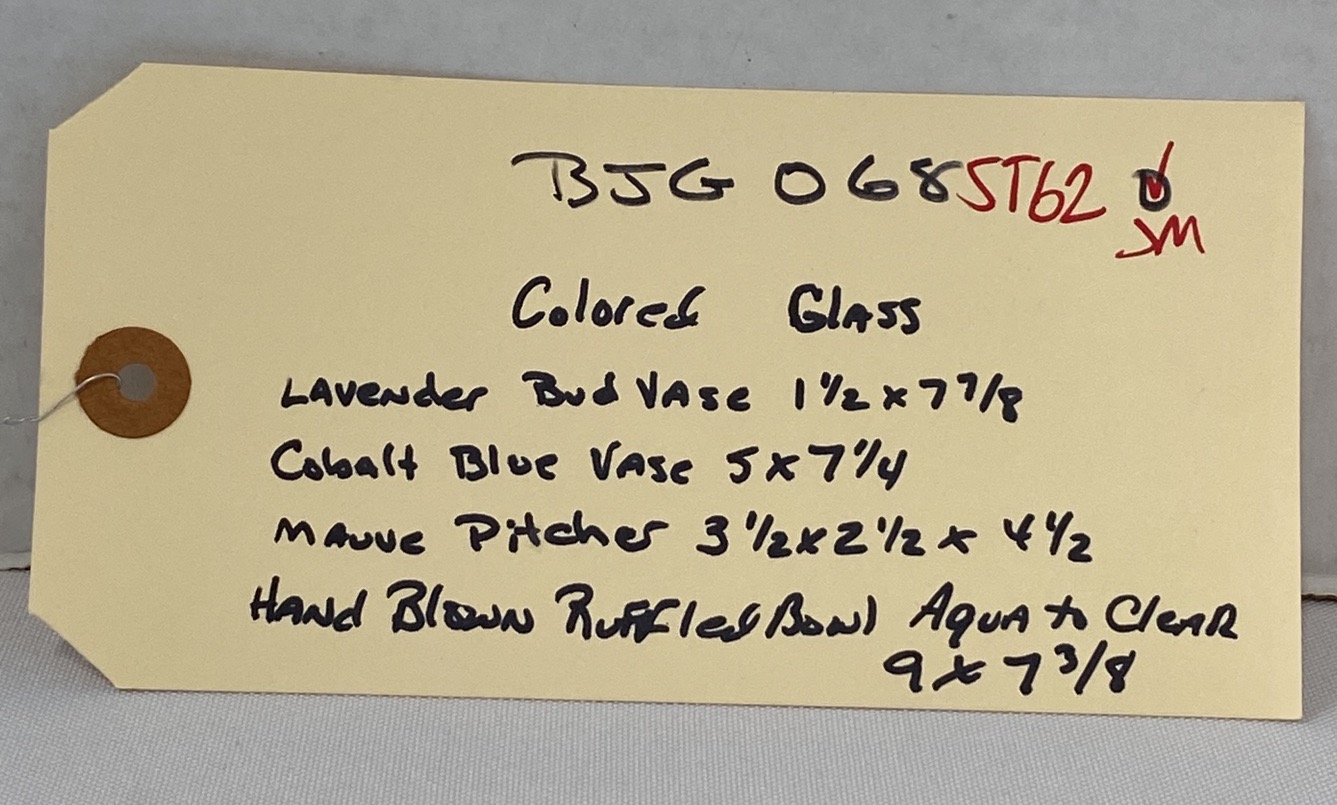 BJG 068 ST62 D
JM
Colored Glass
Lavender Bud Vase 1 1/2 x 7 7/8
Cobalt Blue Vase 5 x 7 1/4
Mauve Pitcher 3 1/2 x 2 1/2 x 4 1/2
Hand Blown Ruffled Bowl Aqua to Clear
9 x 7 3/8